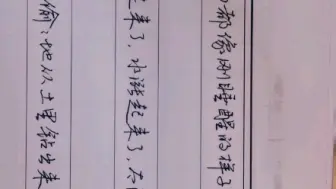 都像刚睡醒的样子
起来了，水涨起来了，太
偷偷地从土里钻出来